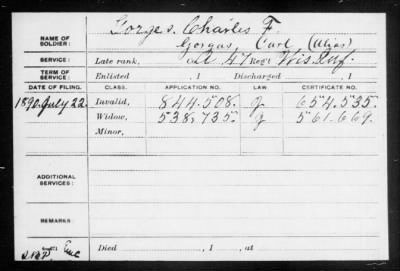 NAME OF SOLDIER: Gorges, Charles F.
Gorgas, Carl (Alias)
SERVICE: Late rank, 47 Reg't Wis. Inf.
TERM OF SERVICE: Enlisted , 1 Discharged , 1
DATE OF FILING. CLASS. APPLICATION NO. LAW. CERTIFICATE NO.
1890, July 22. Invalid, 844.508. g. 654.535.
Widow, 538,735. g 561.669.
Minor,
ADDITIONAL SERVICES:
REMARKS:
Died , 1 , at